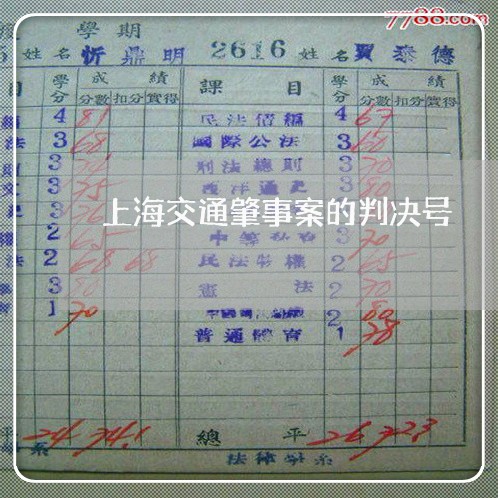 7788.com
學期
5 姓名 忻鼎明 2616 姓名 賈泰德
目 學分 成績 課目 學分 成績
分數 扣分 實得 分數 扣分 實得
4 81 民法債編 4 67
法 3 68 國際公法 3 60
3 刑法總則 3 70
3 75 西洋通史 3 80
上海交通肇事案的判决号
2 65 3 70
法 2 68 68 民法物權 2 65
3 80 憲法 2 70
1 70 2 80
普通體育 1 78
平 24 74.1 總平 26 72.3
系 法律學系